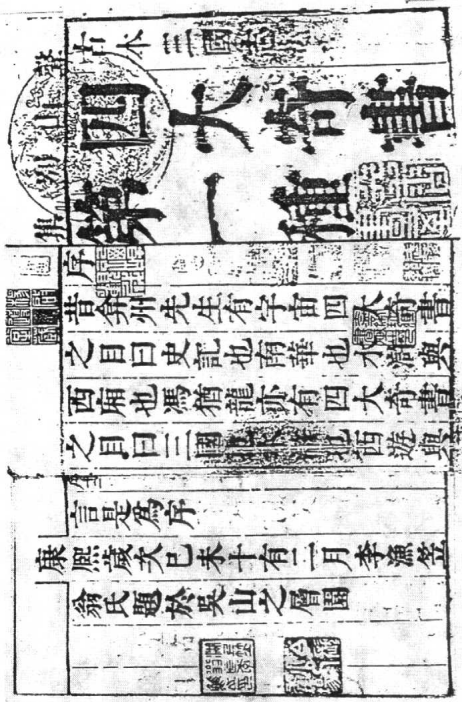 聲山別集
古本三國志
四大奇書
第一種
序
昔弇州先生有宇宙四大奇書
之目曰史記也南華也水滸與
西廂也馮猶龍亦有四大奇書
之目曰三國也水滸也西遊與
言是爲序
康熙歲次己未十有二月李漁笠
翁氏題於吳山之層園